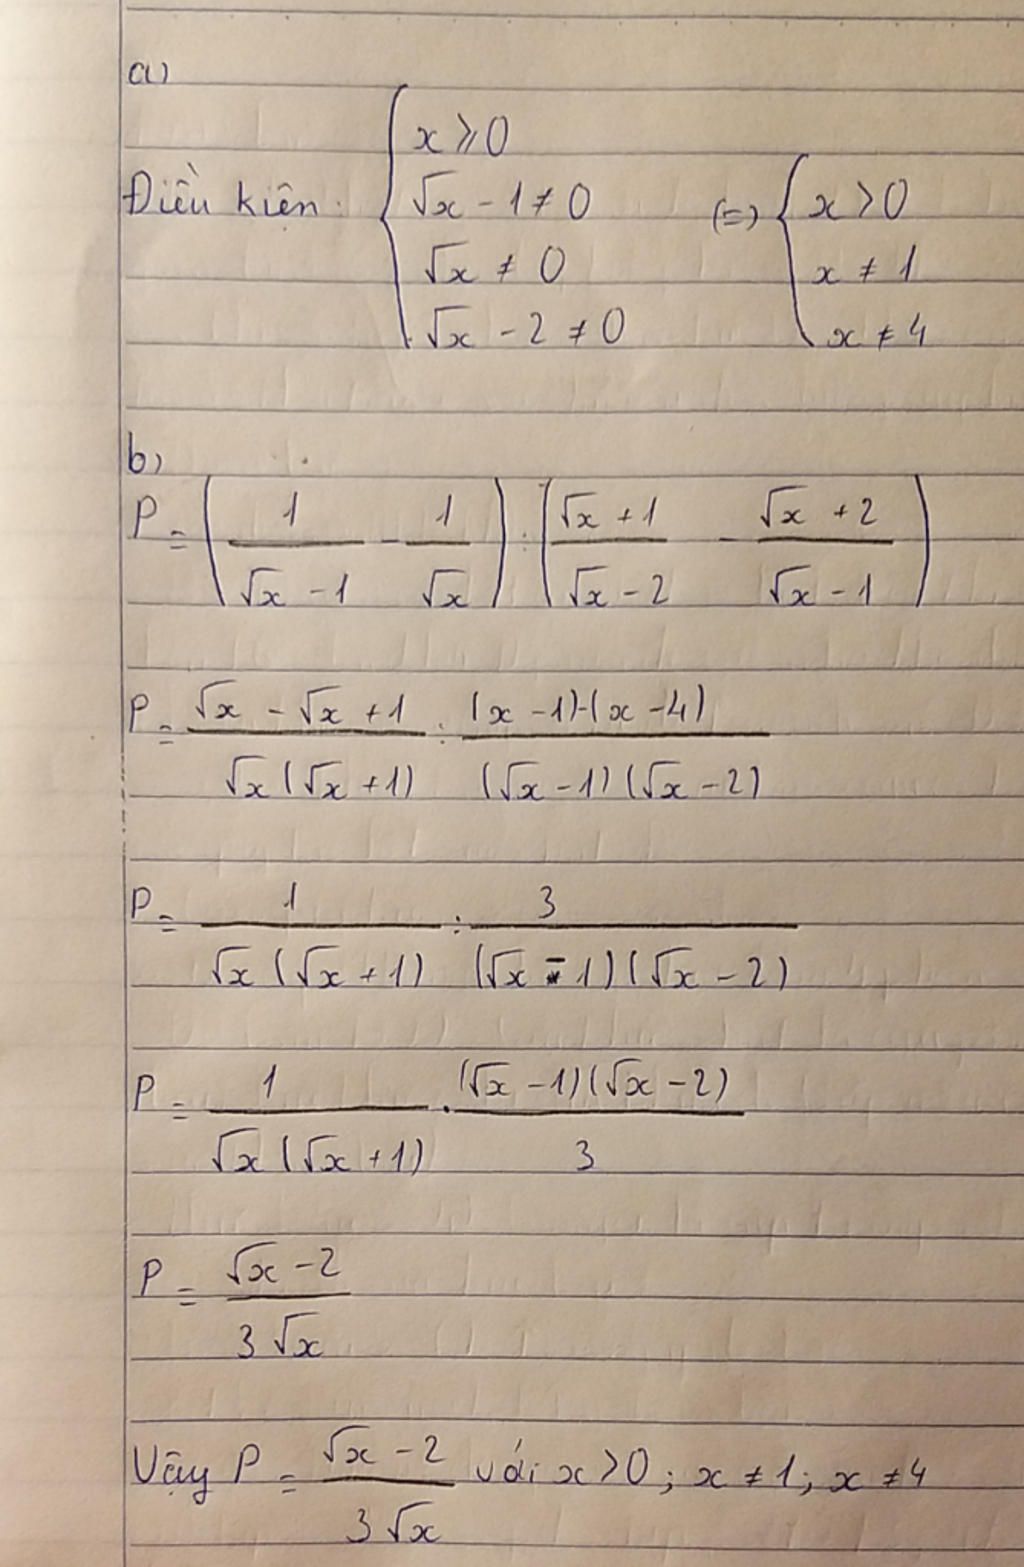 a)
Điều kiện: { x ⩾ 0 ; √x - 1 ≠ 0 ; √x ≠ 0 ; √x - 2 ≠ 0 (=) { x > 0 ; x ≠ 1 ; x ≠ 4
b)
P = (1/(√x - 1) - 1/√x) : ((√x + 1)/(√x - 2) - (√x + 2)/(√x - 1))
P = (√x - √x + 1)/(√x(√x + 1)) : ((x - 1)-(x - 4))/((√x - 1)(√x - 2))
P = 1/(√x(√x + 1)) : 3/((√x - 1)(√x - 2))
P = 1/(√x(√x + 1)) . ((√x - 1)(√x - 2))/3
P = (√x - 2)/(3√x)
Vậy P = (√x - 2)/(3√x) với x > 0 ; x ≠ 1 ; x ≠ 4